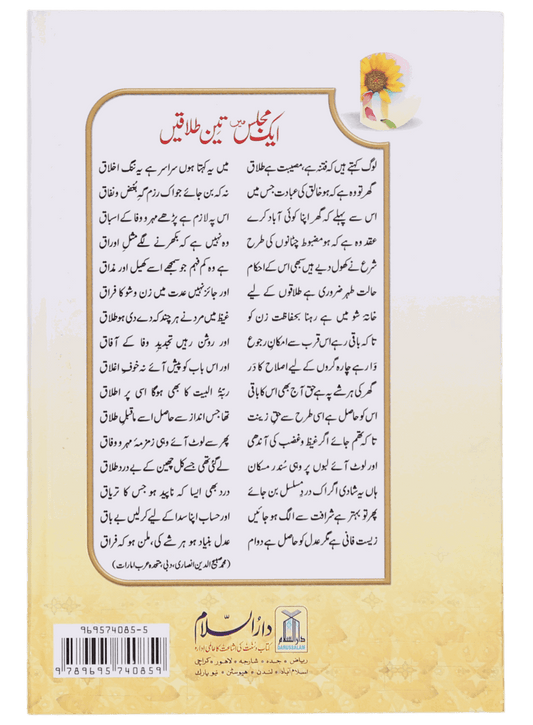 ایک مجلس میں تین طلاقیں
لوگ کہتے ہیں کہ فتنہ ہے، مصیبت ہے طلاق میں یہ کہتا ہوں سراسر ہے یہ ننگ اخلاق
گھر تو وہ ہے کہ ہو خالق کی عبادت جس میں نہ کہ بن جائے جو اک رزم گہِ بغض و نفاق
اس سے پہلے کہ گھر اپنا کوئی آباد کرے اس پہ لازم ہے پڑھے مہر و وفا کے اسباق
عقد وہ ہے کہ ہو مضبوط چٹانوں کی طرح وہ نہیں ہے کہ بکھرنے لگے مثلِ اوراق
شرع نے کھول دیے ہیں سبھی اس کے احکام ہے وہ کم فہم جو سمجھے اسے کھیل اور مذاق
حالت طہر ضروری ہے طلاقوں کے لیے اور جائز نہیں عدت میں زن و شو کا فراق
خانۂ شو میں ہے رہنا بحفاظت زن کو غیظ میں مرد نے ہر چند کہ دے دی ہو طلاق
تا کہ باقی رہے اس قرب سے امکانِ رجوع اور روشن رہیں تجدیدِ وفا کے آفاق
وَا رہے چارہ گروں کے لیے اصلاح کا دَر اور اس باب کو پیش آئے نہ خوفِ اغلاق
گھر کی ہر شے پہ ہے حق آج بھی اس کا باقی ربۃ البیت کا بھی ہوگا اسی پر اطلاق
اس کو حاصل ہے اسی طرح سے حقِ زینت تھا جس انداز سے حاصل اسے ماقبلِ طلاق
تا کہ تھم جائے اگر غیظ و غضب کی آندھی پھر سے لوٹ آئے وہی زمزمۂ مہر و وفاق
اور لوٹ آئے لبوں پر وہی سُندر مسکان لے گئی تھی جسے کل چھین کے بے درد طلاق
ہاں یہ شادی اگر اک دردِ مسلسل بن جائے درد بھی ایسا کہ ناپید ہو جس کا تریاق
پھر تو بہتر ہے شرافت سے الگ ہو جائیں اور حساب اپنا سدا کے لیے کرلیں بے باق
زیست فانی ہے مگر عدل کو حاصل ہے دوام عدل بنیاد ہو ہر شے کی، ملن ہو کہ فراق
(محمد سمیع الدین انصاری، دبی، متحدہ عرب امارات)
969574085-5
9 789695 740859
دارُالسّلام
کتاب و سنت کی اشاعت کا عالمی ادارہ
ریاض • جدہ • شارجہ • لاہور • کراچی
اسلام آباد • لندن • ہیوسٹن • نیویارک
دارالسلام
DARUSSALAM